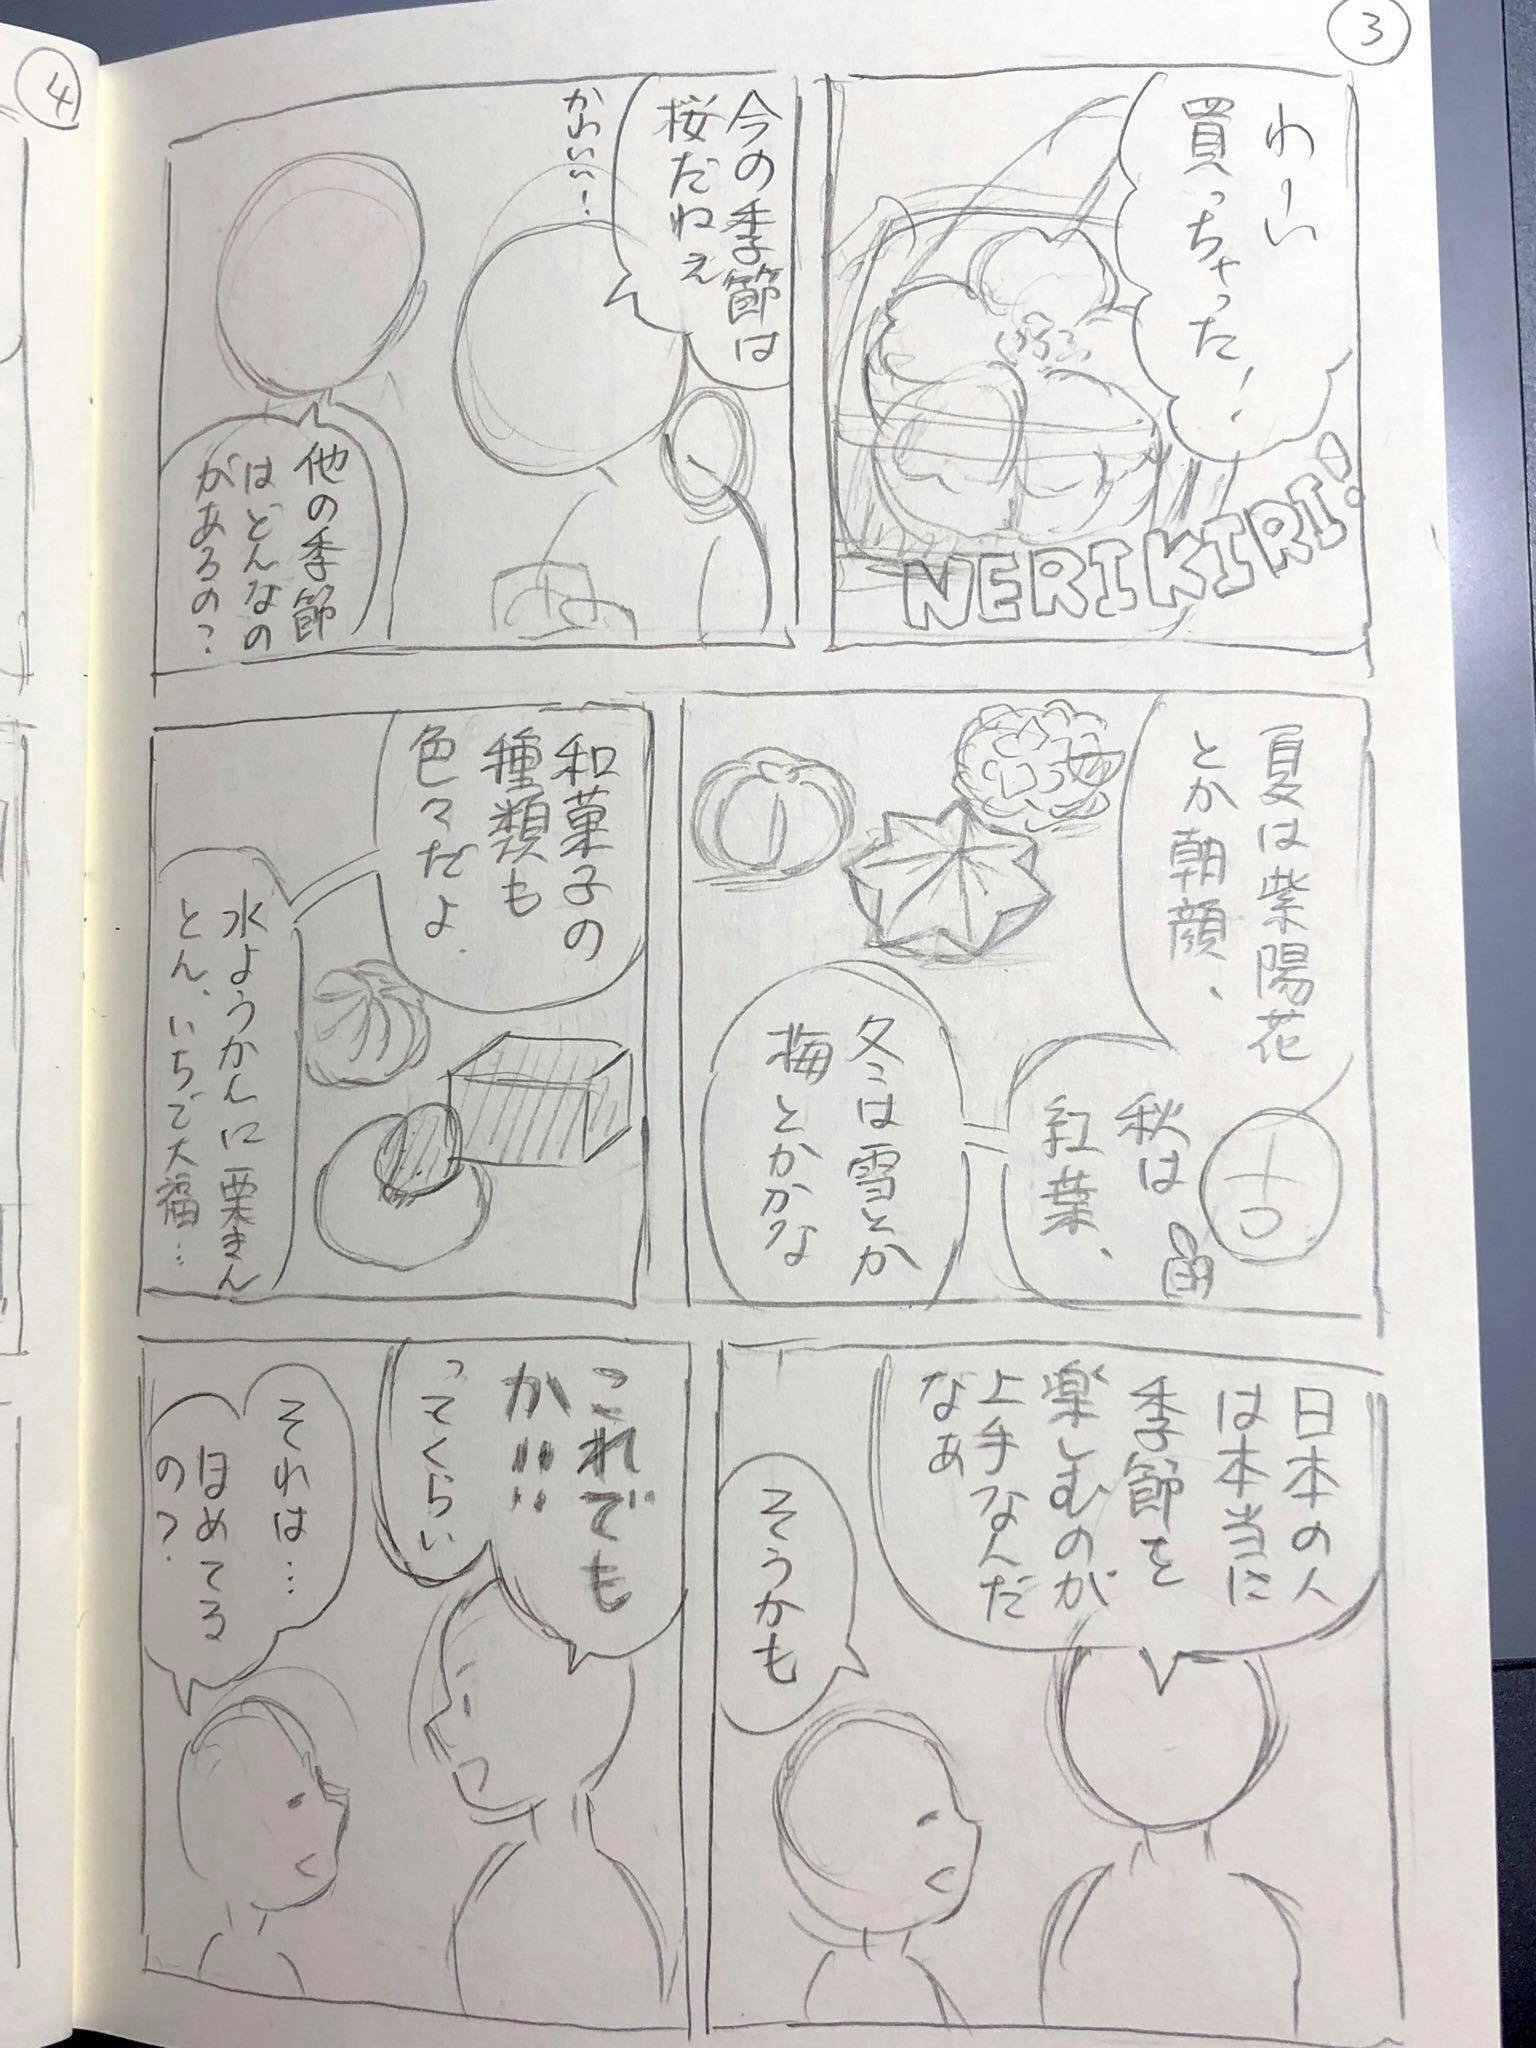 3
わーい
買っちゃった!
NERIKIRI!
今の季節は
桜だねぇ
かわいい!
他の季節
はどんなの
があるの?
夏は紫陽花
とか朝顔、
秋は
紅葉、
冬は雪とか
梅とかかな
和菓子の
種類も
色々だよ
水ようかんに栗きん
とん、いちご大福…
日本の人
は本当に
季節を
楽しむのが
上手なんだ
なあ
そうかも
これでも
か!!
ってくらい
それは…
ほめてる
の?
4